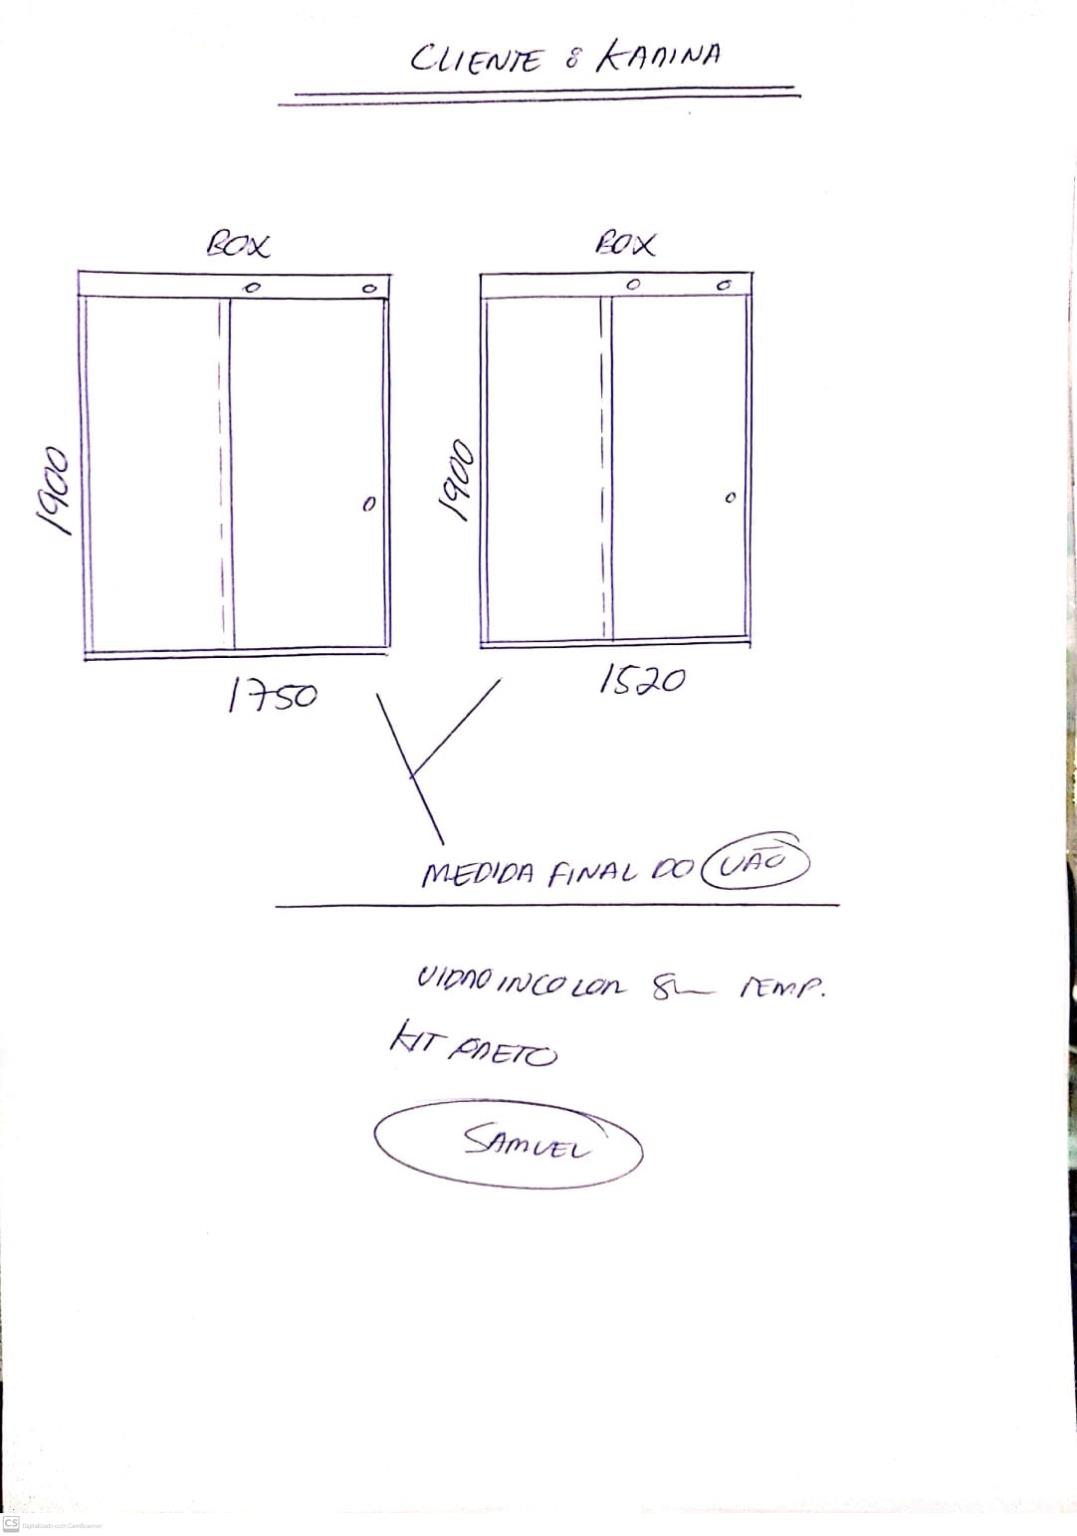 CLIENTE: KARINA
BOX
BOX
1900
1900
1750
1520
MEDIDA FINAL DO VÃO
VIDRO INCOLOR 8 TEMP.
KIT PRETO
SAMUEL
CS Digitalizado com CamScanner